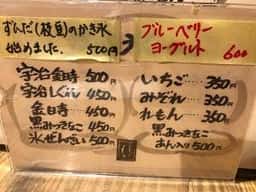 ずんだ(枝豆)のかき氷
始めました。 500円
ブルーベリー
ヨーグルト 600
宇治金時 500円
宇治しぐれ 450円
金時 …… 450円
黒みつきなこ 450円
氷ぜんざい 500円
いちご…… 350円
みぞれ…… 350円
れもん…… 350円
黒みつきなこ
あん入り 500円